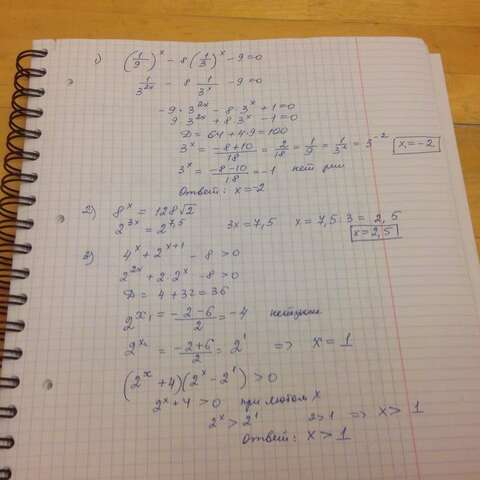 1) (1/9)^x - 8(1/3)^x - 9 = 0
1/3^{2x} - 8 1/3^x - 9 = 0
-9·3^{2x} - 8·3^x + 1 = 0
9 3^{2x} + 8 3^x - 1 = 0
D = 64 + 4·9 = 100
3^x = (-8+10)/18 = 2/18 = 1/9 = 1/3^2 = 3^{-2} x_1 = -2
3^x = (-8-10)/18 = -1 нет реш
Ответ: x = -2
2) 8^x = 128√2
2^{3x} = 2^{7,5} 3x = 7,5 x = 7,5 : 3 = 2,5
x = 2,5
3) 4^x + 2^{x+1} - 8 > 0
2^{2x} + 2·2^x - 8 > 0
D = 4 + 32 = 36
2^{x_1} = (-2-6)/2 = -4
2^{x_2} = (-2+6)/2 = 2^1 => x = 1
(2^x + 4)(2^x - 2^1) > 0
2^x + 4 > 0 при любом x
2^x > 2^1 2>1 => x > 1
Ответ: x > 1